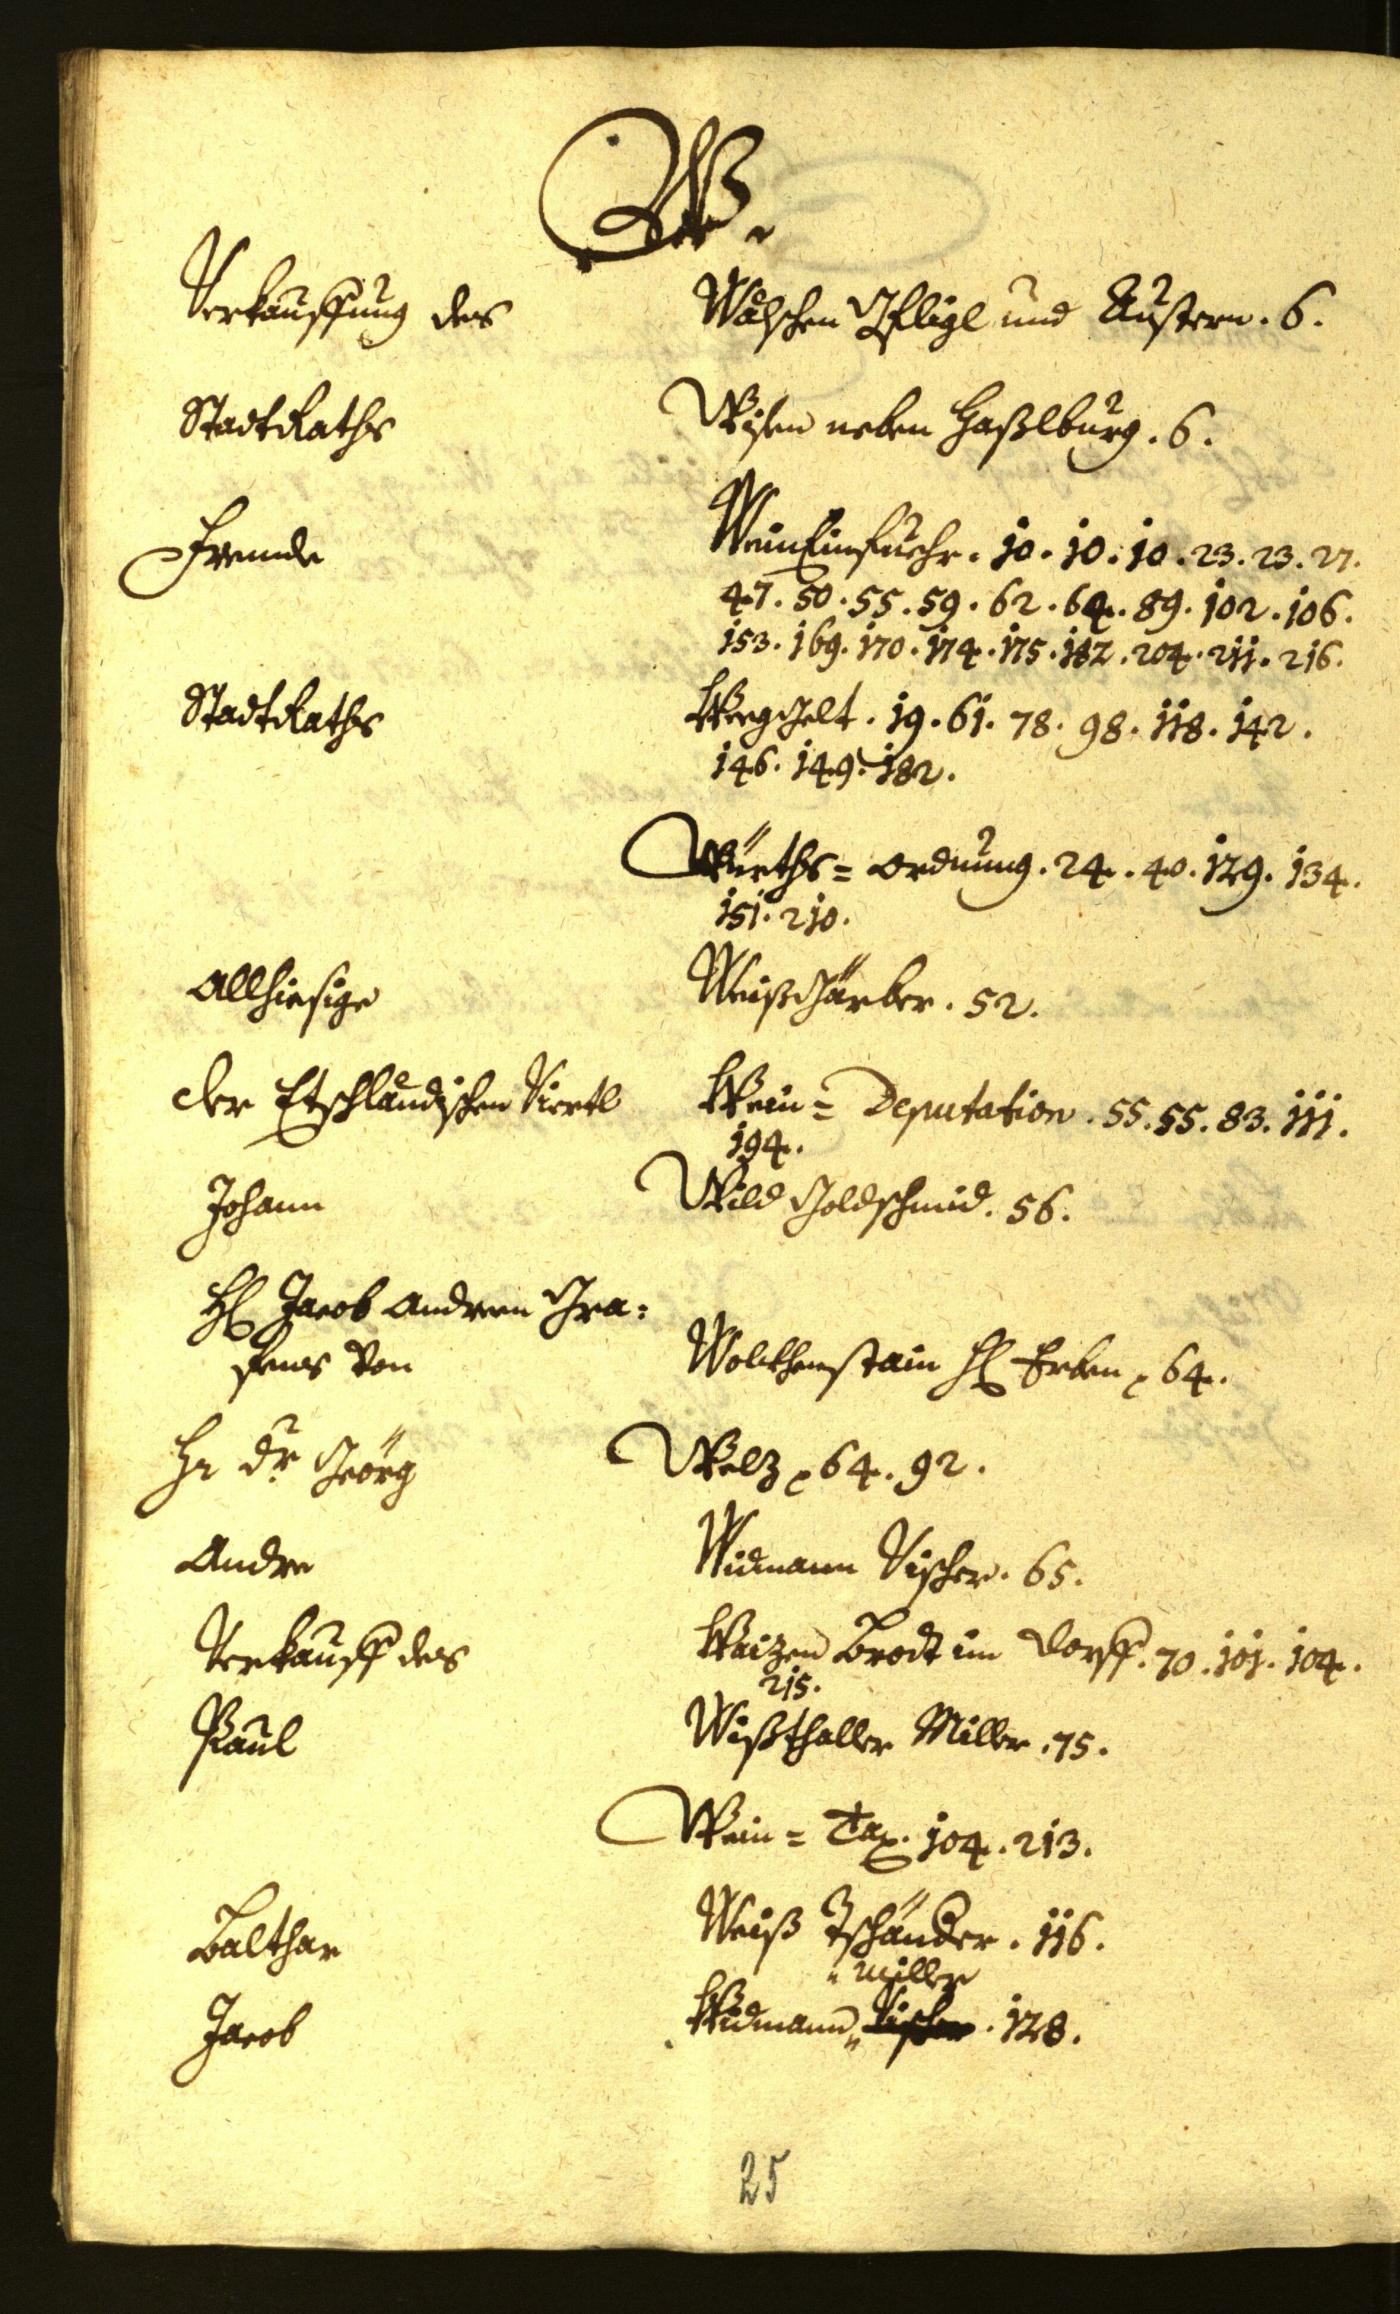 W.
Verkauffung des Wälschen Gfligl und Austern. 6.
StadtRaths Wisen neben Haßlburg. 6.
Fremde WeinEinfuehr. 10. 10. 10. 23. 23. 27.
47. 50. 55. 59. 62. 64. 89. 102. 106.
153. 169. 170. 174. 175. 182. 204. 211. 216.
StadtRaths WegGelt. 19. 61. 78. 98. 118. 142.
146. 149. 182.
Würths= ordnung. 24. 40. 129. 134.
151. 210.
Allhiesige WeißGärber. 52.
der Etschländischen Viertl Wein= Deputation. 55. 55. 83. 111.
194.
Johann Wild Goldschmid. 56.
Jacob Andreen Gra=
fens von Wolckhenstain Erben 64.
Hr Dr Geörg Welz 64. 92.
Andre Widmann Vischer. 65.
Verkauff des Waizen Brodt im Dorff. 70. 101. 104.
215.
Paul Wißthaller Miller. 75.
Wein= Tax. 104. 213.
Balthar Weiß Tschänder. 116.
Miller
Jacob Widmann Vischer. 128.
25